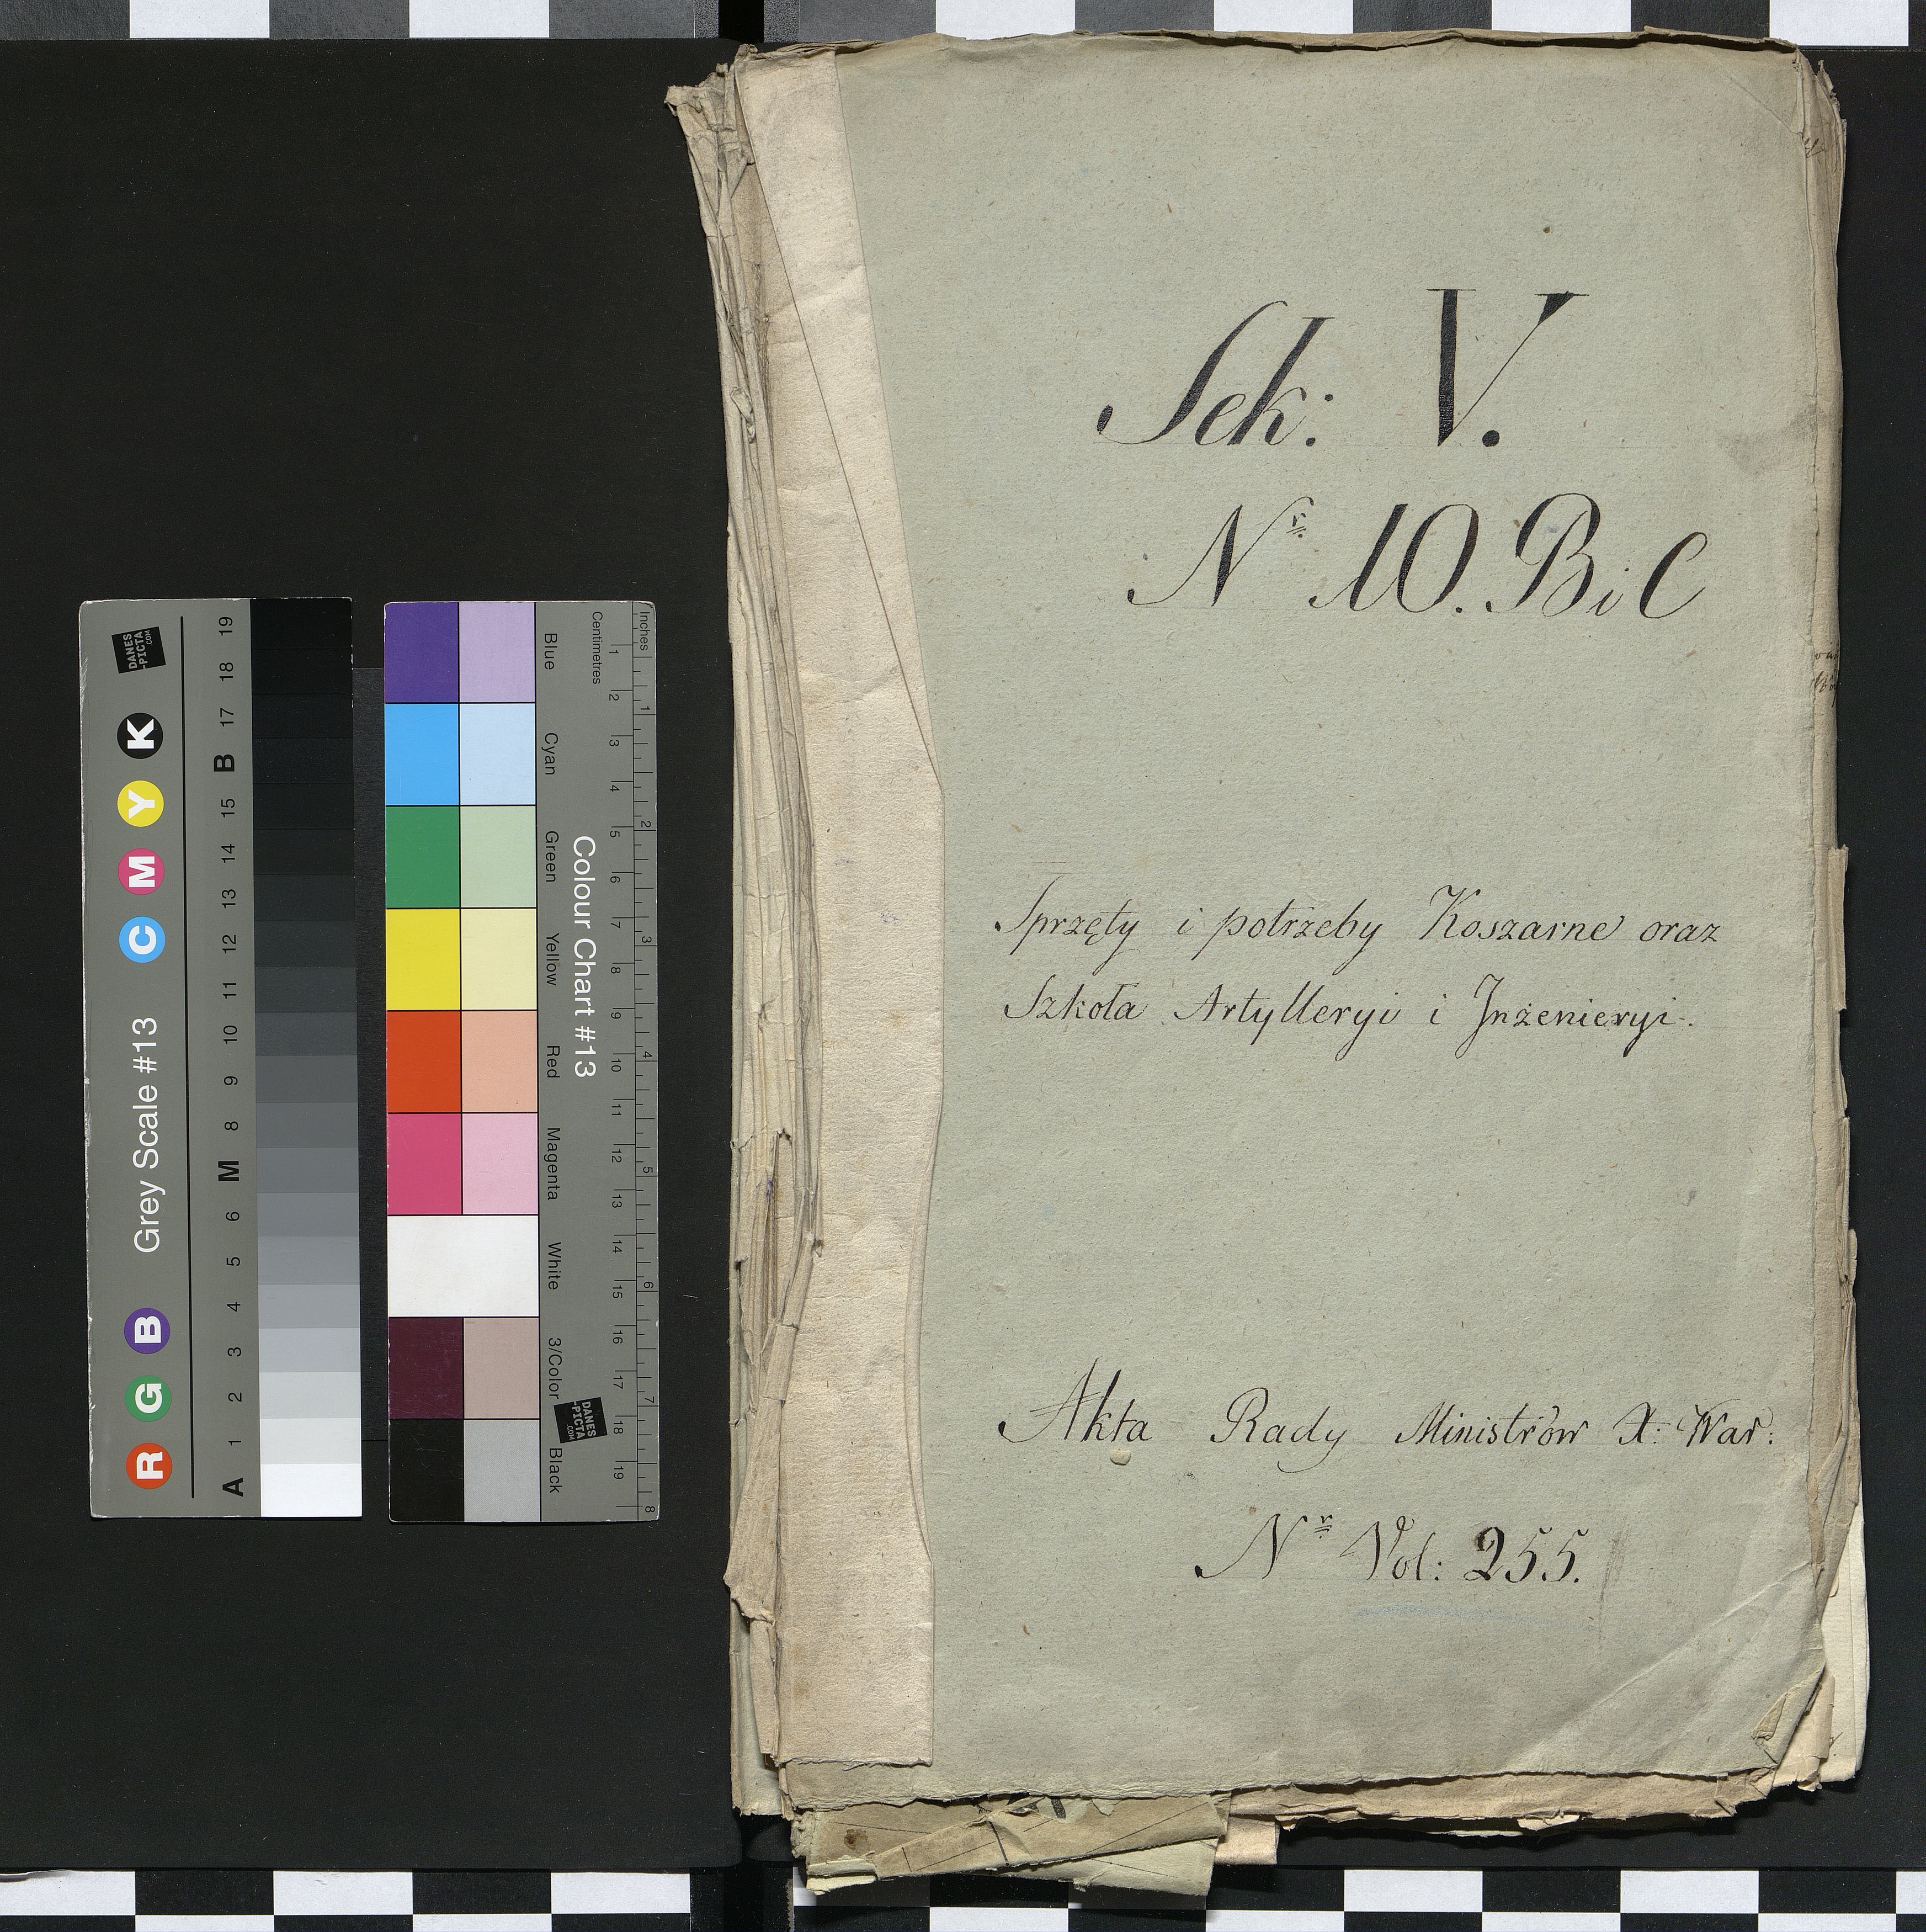 Sek: V.
Nr. 10. B i C
Sprzęty i potrzeby Koszarne oraz
Szkoła Artylleryi i Inżenieryi.
Akta Rady Ministrów X: War:
Nr Vol: 255.
Grey Scale #13
R G B C M Y K
A 1 2 3 4 5 6 M 8 9 10 11 12 13 14 15 B 17 18 19
DANES
-PICTA
.COM
Colour Chart #13
Blue
Cyan
Green
Yellow
Red
Magenta
White
3/Color
Black
Centimetres
1 2 3 4 5 6 7 8 9 10 11 12 13 14 15 16 17 18 19
Inches
1 2 3 4 5 6 7 8
DANES
-PICTA
.COM